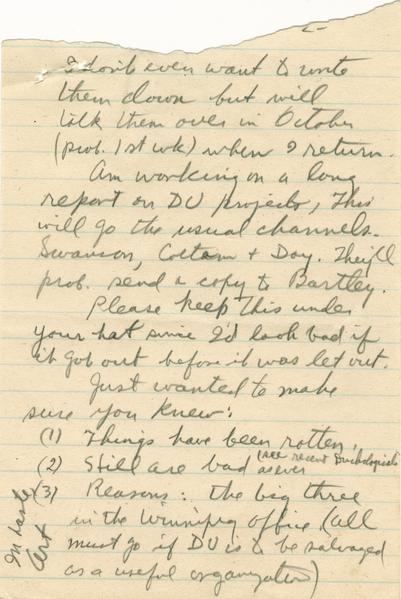 I don't even want to write
them down but will
talk them over in October
(prob. 1st wk) when I return.
Am working on a long
report on DU projects, This
will go the usual channels.
Swanson, Cottam + Day. They'll
prob. send a copy to Bartley.
Please keep this under
your hat since I'd look bad if
it got out before it was let out.
Just wanted to make
sure you knew:
(1) Things have been rotten.
(2) Still are bad as ever (see recent Duckologists
(3) Reasons: the big three
in the Winnipeg office (all
must go if DU is to be salvaged
as a useful organization)
In haste
Art